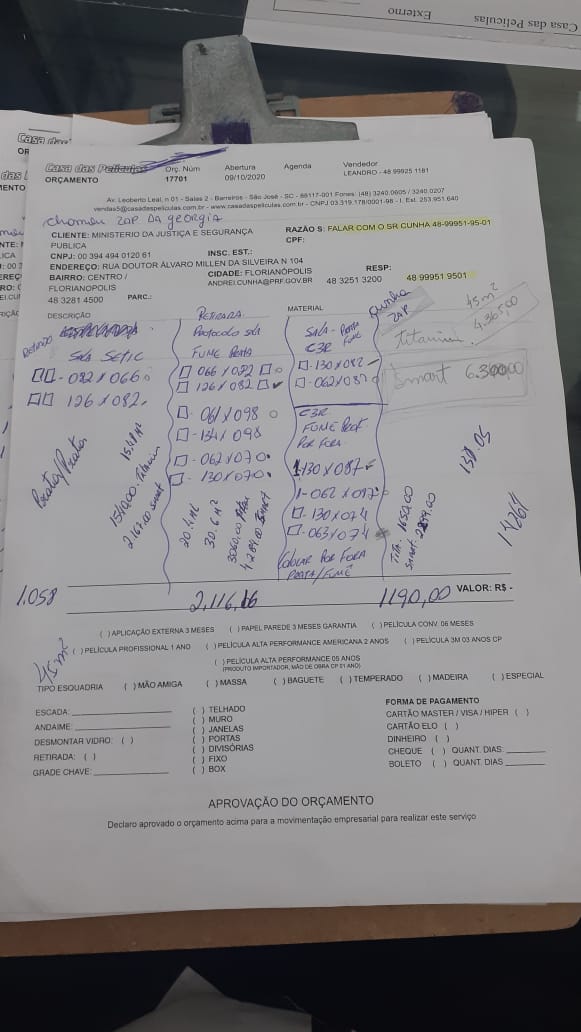 Casa das Películas
Externo
Casa das Películas
ORÇAMENTO
Orç. Núm
17701
Abertura
09/10/2020
Agenda
Vendedor
LEANDRO - 48 99925 1181
Av. Leoberto Leal, n 01 - Salas 2 - Barreiros - São José - SC - 88117-001 Fones: (48) 3240.0605 / 3240.0207
vendas5@casadaspeliculas.com.br - www.casadaspeliculas.com.br - CNPJ 03.319.178/0001-98 - I. Est. 253.951.640
chamou ZAP DA georgia
CLIENTE: MINISTERIO DA JUSTIÇA E SEGURANÇA PUBLICA
RAZÃO S: FALAR COM O SR CUNHA 48-99951-95-01
CPF:
CNPJ: 00 394 494 0120 61
INSC. EST.:
ENDEREÇO: RUA DOUTOR ÁLVARO MILLEN DA SILVEIRA N 104
BAIRRO: CENTRO / FLORIANOPOLIS
CIDADE: FLORIANÓPOLIS
ANDREI.CUNHA@PRF.GOV.BR
48 3251 3200
RESP:
48 99951 9501
48 3281 4500
PARC.:
DESCRIÇÃO
MATERIAL
RETIRADA
Sala SETIC
082 X 066
126 X 082
RETIRADA
Protocolo sala
FUME PRATA
066 X 082
126 X 082
061 X 098
134 X 098
062 X 070
130 X 070
SALA - Prata Fume
C3R
130 X 082
062 X 087
C3R
FUME Prof.
POR FORA
1-130 X 087
1-062 X 097
130 X 074
063 X 074
Colocar POR FORA
PRATA/FUMÊ
Cunha
ZAP
45 m²
4.365,00
Titanium
Smart 6.300,00
Prata/Prata
2.167,00 smart
20.4 M2
30.6 M²
Tita: 1650,00
131.05
14261
1.058
2.116,16
1190,00
VALOR: R$ -
45 m²
( ) APLICAÇÃO EXTERNA 3 MESES ( ) PAPEL PAREDE 3 MESES GARANTIA ( ) PELÍCULA CONV. 06 MESES
( ) PELÍCULA PROFISSIONAL 1 ANO ( ) PELÍCULA ALTA PERFORMANCE AMERICANA 2 ANOS ( ) PELÍCULA 3M 03 ANOS CP
( ) PELÍCULA ALTA PERFORMANCE 05 ANOS
(PRODUTO IMPORTADOR, MÃO DE OBRA CP 01 ANO)
TIPO ESQUADRIA ( ) MÃO AMIGA ( ) MASSA ( ) BAGUETE ( ) TEMPERADO ( ) MADEIRA ( ) ESPECIAL
ESCADA:
ANDAIME:
DESMONTAR VIDRO: ( )
RETIRADA: ( )
GRADE CHAVE:
( ) TELHADO
( ) MURO
( ) JANELAS
( ) PORTAS
( ) DIVISÓRIAS
( ) FIXO
( ) BOX
FORMA DE PAGAMENTO
CARTÃO MASTER / VISA / HIPER ( )
CARTÃO ELO ( )
DINHEIRO ( )
CHEQUE ( ) QUANT. DIAS:
BOLETO ( ) QUANT. DIAS
APROVAÇÃO DO ORÇAMENTO
Declaro aprovado o orçamento acima para a movimentação empresarial para realizar este serviço